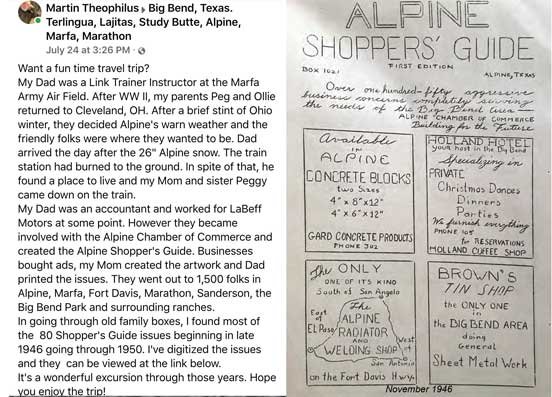 Martin Theophilus ▸ Big Bend, Texas.
Terlingua, Lajitas, Study Butte, Alpine,
Marfa, Marathon
July 24 at 3:26 PM ·
Want a fun time travel trip?
My Dad was a Link Trainer Instructor at the Marfa
Army Air Field. After WW II, my parents Peg and Ollie
returned to Cleveland, OH. After a brief stint of Ohio
winter, they decided Alpine's warn weather and the
friendly folks were where they wanted to be. Dad
arrived the day after the 26" Alpine snow. The train
station had burned to the ground. In spite of that, he
found a place to live and my Mom and sister Peggy
came down on the train.
My Dad was an accountant and worked for LaBeff
Motors at some point. However they became
involved with the Alpine Chamber of Commerce and
created the Alpine Shopper's Guide. Businesses
bought ads, my Mom created the artwork and Dad
printed the issues. They went out to 1,500 folks in
Alpine, Marfa, Fort Davis, Marathon, Sanderson, the
Big Bend Park and surrounding ranches.
In going through old family boxes, I found most of
the 80 Shopper's Guide issues beginning in late
1946 going through 1950. I've digitized the issues
and they can be viewed at the link below.
It's a wonderful excursion through those years. Hope
you enjoy the trip!
ALPINE
SHOPPERS' GUIDE
FIRST EDITION
BOX 1021
ALPINE, TEXAS
Over one hundred-fifty aggressive
business concerns completely serving
the needs of the Big Bend Area —
ALPINE CHAMBER OF COMMERCE
Building for the Future
Available
in
ALPINE
CONCRETE BLOCKS
two sizes
4" x 8" x 12"
4" x 6" x 12"
GARD CONCRETE PRODUCTS
PHONE 302
HOLLAND HOTEL
your host in the Big Bend
Specializing in
PRIVATE
Christmas Dances
Dinners
Parties
We furnish everything
PHONE 105
for RESERVATIONS
HOLLAND COFFEE SHOP
The ONLY
ONE OF ITS KIND
South of San Angelo
East of
El Paso
The
ALPINE
RADIATOR
AND
WELDING SHOP
West of
San Antonio
on the Fort Davis Hwy.
BROWN'S
TIN SHOP
the ONLY ONE
in
the BIG BEND AREA
doing
General
Sheet Metal Work
November 1946